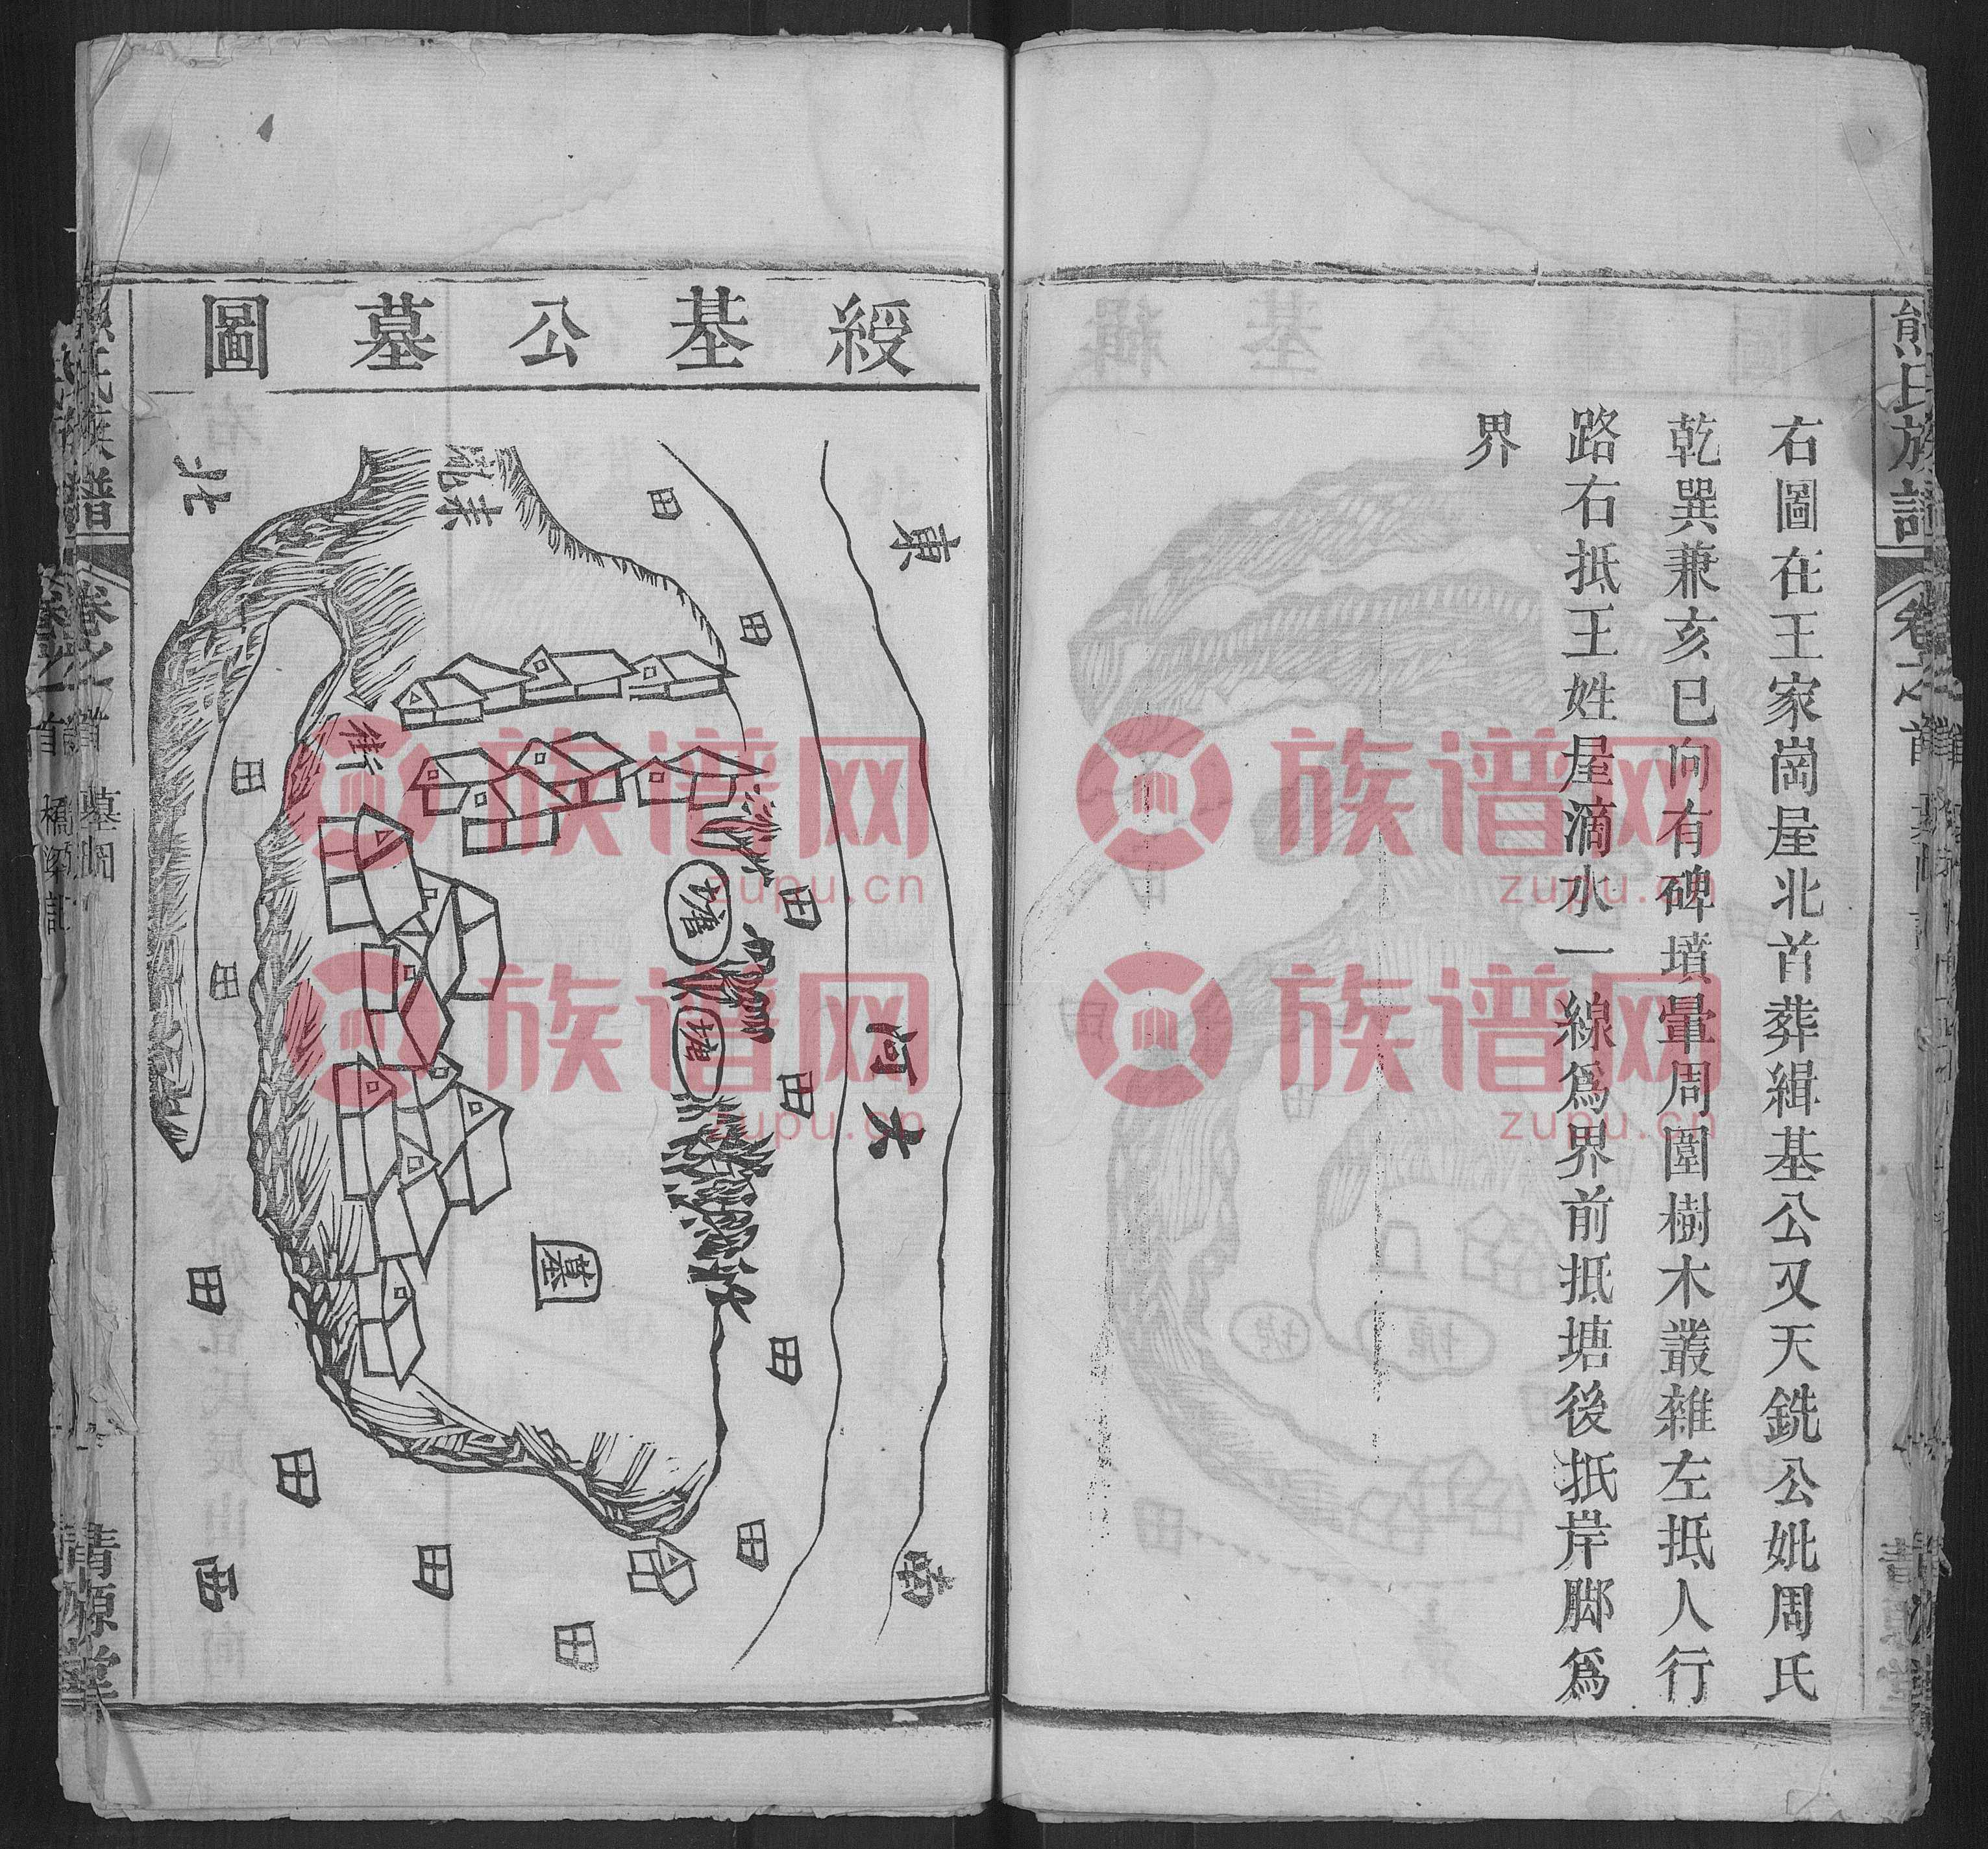 熊氏族譜
卷之首
右圖在王家崗屋北首葬緝基公又天銑公妣周氏
乾巽兼亥巳向有碑墳暈周圍樹木叢雜左抵人行
路右抵王姓屋滴水一線爲界前抵塘後抵岸脚爲
界
綬基公墓圖
東
南
西
北
大河
來
街
塘
塘
墓
田
田
田
田
田
田
田
田
田
田
田
田
氏族譜
卷之首
墓圖
清源堂
族谱网
zupu.cn
族谱网
zupu.cn
族谱网
zupu.cn
族谱网
zupu.cn